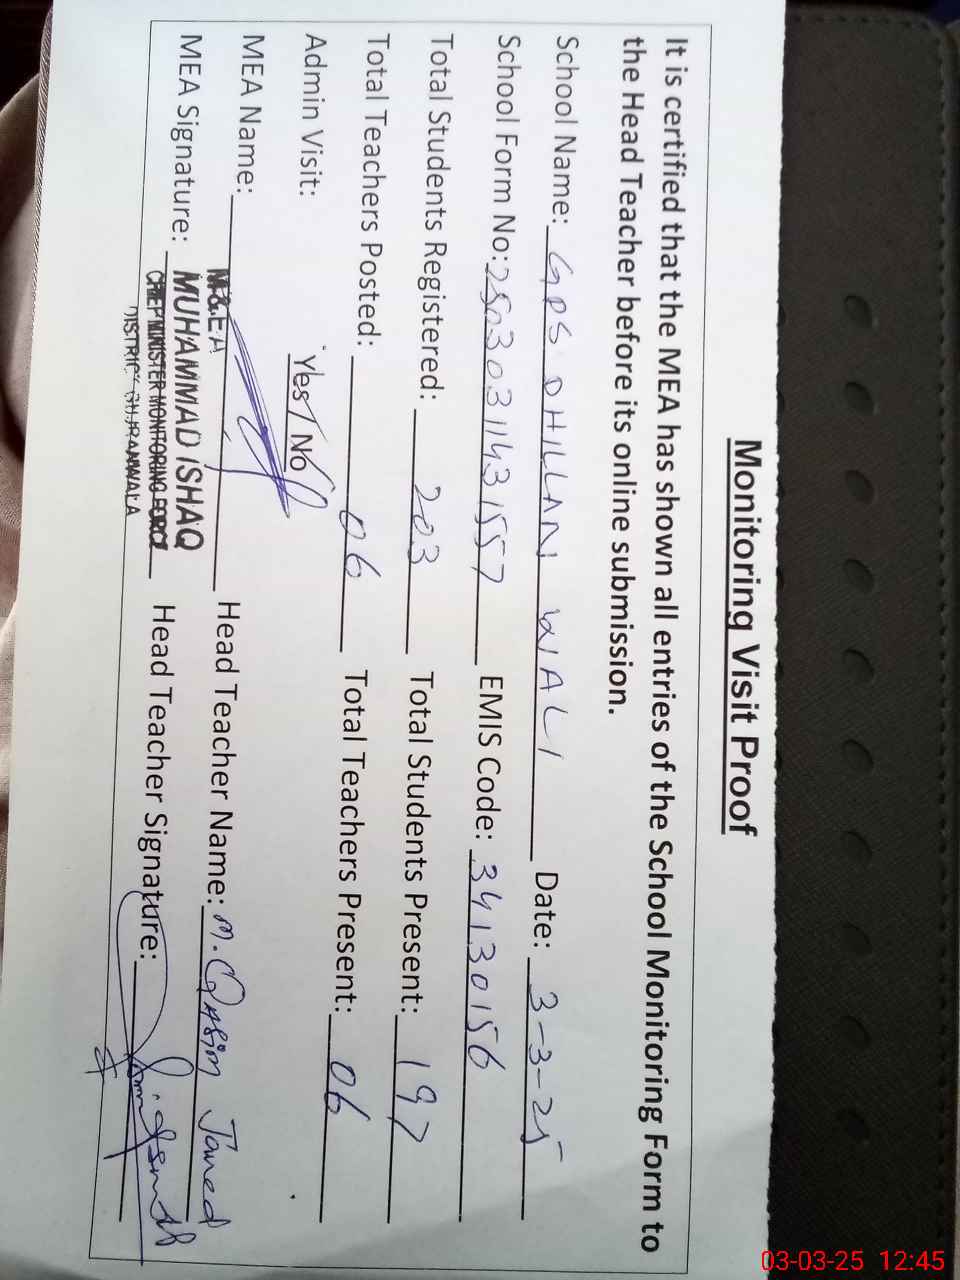 Monitoring Visit Proof
It is certified that the MEA has shown all entries of the School Monitoring Form to
the Head Teacher before its online submission.
School Name: GPS DHILLAN WALI Date: 3-3-25
School Form No: 2503031143157 EMIS Code: 34130156
Total Students Registered: 203 Total Students Present: 197
Total Teachers Posted: 06 Total Teachers Present: 06
Admin Visit: Yes/No
MEA Name: M&EA Head Teacher Name: M. Qasim Javed
MEA Signature: MUHAMMAD ISHAQ Head Teacher Signature:
CHIEF MINISTER MONITORING FORCE
DISTRICT GUJRANWALA
03-03-25 12:45